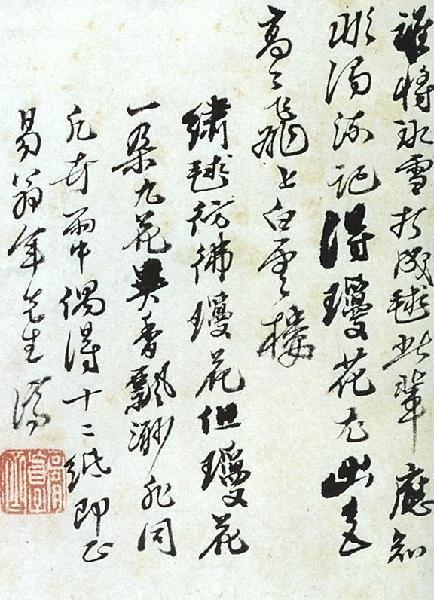 誰將冰雪打成毬此輩應知
濁流記得瓊花此意
高高飛上白雲樓
繡毬彷彿瓊花但瓊花
一朵九花異香飄渺非同
凡卉雨中偶得十二紙即正
易翁年先生 濟